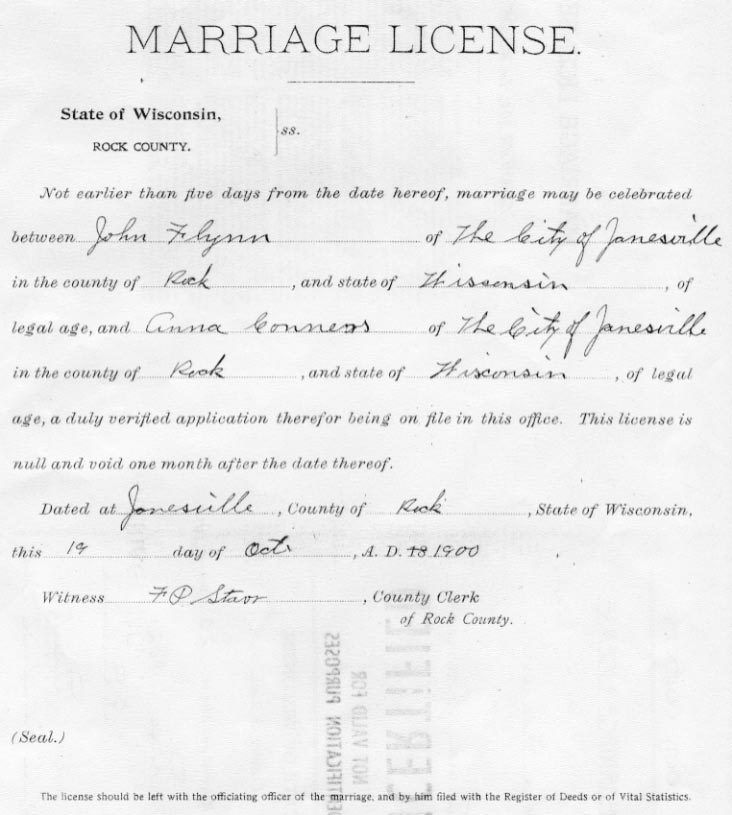 MARRIAGE LICENSE.
State of Wisconsin,
ss.
ROCK COUNTY.
Not earlier than five days from the date hereof, marriage may be celebrated
between John Flynn of The City of Janesville
in the county of Rock, and state of Wisconsin, of
legal age, and Anna Conners of The City of Janesville
in the county of Rock, and state of Wisconsin, of legal
age, a duly verified application therefor being on file in this office. This license is
null and void one month after the date thereof.
Dated at Janesville, County of Rock, State of Wisconsin,
this 19 day of Oct, A. D. 18 1900
Witness F P Starr, County Clerk
of Rock County.
IDENTIFICATION PURPOSES
NOT VALID FOR
CERTIFIED
(Seal.)
The license should be left with the officiating officer of the marriage, and by him filed with the Register of Deeds or of Vital Statistics.